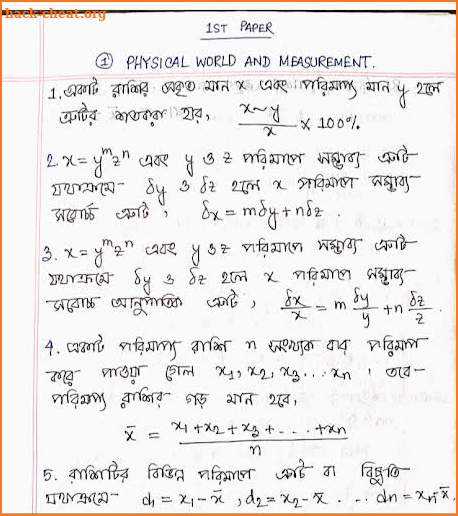 hack-cheat.org
1ST PAPER
① PHYSICAL WORLD AND MEASUREMENT.
1. একটি রাশির প্রকৃত মান x এবং পরিমাপ্য মান y হলে
ত্রুটির শতকরা হার, x~y / x × 100%
2. x = yᵐzⁿ এবং y ও z পরিমাপে সম্ভাব্য ত্রুটি
যথাক্রমে δy ও δz হলে x পরিমাপে সম্ভাব্য
সর্বোচ্চ ত্রুটি, δx = mδy + nδz .
3. x = yᵐzⁿ এবং y ও z পরিমাপে সম্ভাব্য ত্রুটি
যথাক্রমে δy ও δz হলে x পরিমাপে সম্ভাব্য
সর্বোচ্চ আনুপাতিক ত্রুটি, δx/x = m δy/y + n δz/z .
4. একটি পরিমাপ্য রাশি n সংখ্যক বার পরিমাপ
করে পাওয়া গেল x₁, x₂, x₃ ... xn , তবে
পরিমাপ্য রাশির গড় মান হবে,
x̄ = x₁+x₂+x₃+ - . . . +xn / n
5. রাশিটির বিভিন্ন পরিমাপে ত্রুটি বা বিচ্যুতি
যথাক্রমে- d₁ = x₁-x̄ , d₂ = x₂-x̄ . .. dn = xn-x̄.
hack-cheat.org